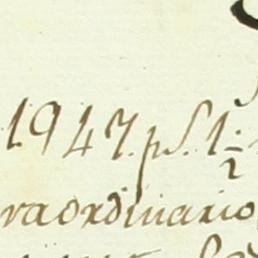 1947. pS. 1½
raordinario